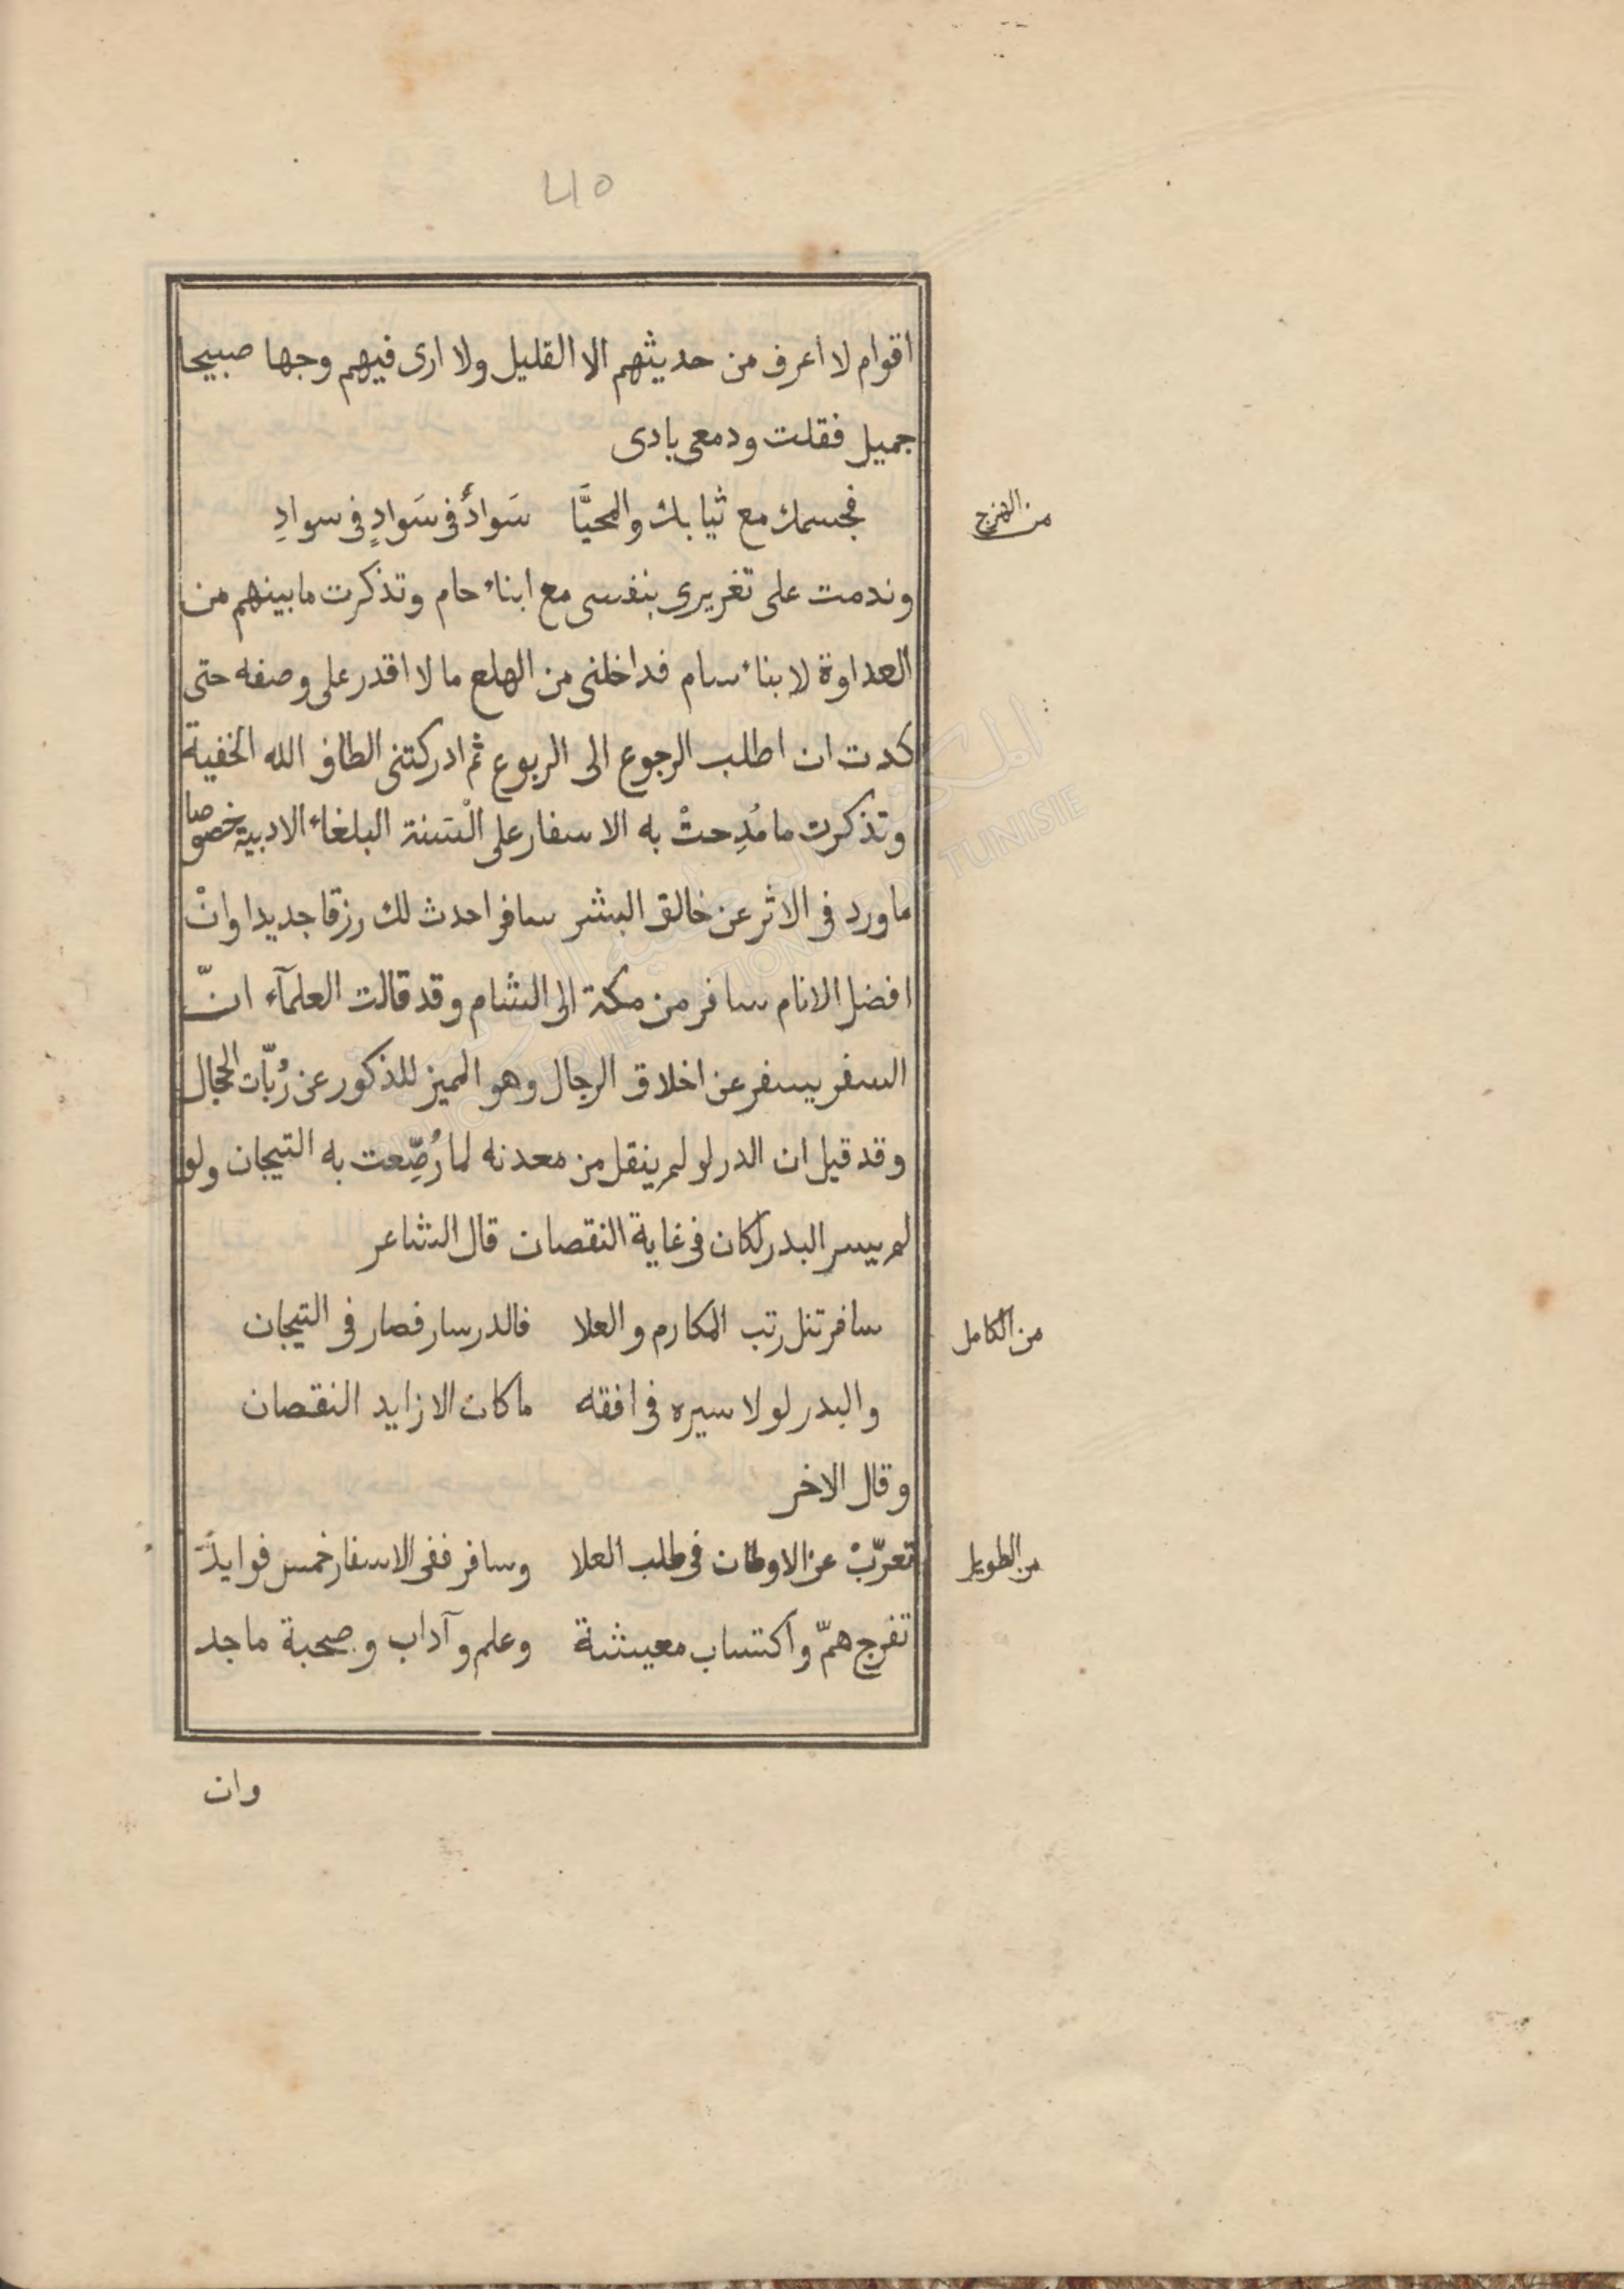 ٤١٥
اقوام لا اعرف من حديثهم الا القليل ولا ارى فيهم وجها صبيحا
جميل فقلت ودمعى بادى
من الهزج
فجسمك مع ثيابك والمحيَّا سَوادٌ فى سَوادٍ فى سوادِ
وندمت على تغريرى بنفسى مع ابناء حام وتذكرت ما بينهم من
العداوة لابناء سام فداخلنى من الهلع ما لا اقدر على وصفه حتى
كدت ان اطلب الرجوع الى الربوع ثم ادركتنى الطاف الله الخفية
وتذكرت ما مُدِحتْ به الاسفار على الْسَنة البلغاء الادبية خصوصا
ما ورد فى الاثر عن خالق البشر سافر احدث لك رزقا جديدا وانْ
افضل الانام سافر من مكة الى الشام وقد قالت العلمآء انّ
السفر يسفر عن اخلاق الرجال وهو المميز للذكور عن رُبّات الحجال
وقد قيل ان الدر لو لم ينقل من معدنه لما رُصِّعت به التيجان ولو
لم يسر البدر لكان فى غاية النقصان قال الشاعر
من الكامل
سافر تنل رتب المكارم والعلا فالدر سار فصار فى التيجان
والبدر لولا سيره فى افقه ما كان الا زايد النقصان
وقال الاخر
من الطويل
تعرّبْ عن الاوطان فى طلب العلا وسافر ففى الاسفار خمس فوايدَ
تفرج همّ واكتساب معيشة وعلم وآداب وصحبة ماجد
وان
المكتبة الوطنية التونسية
BIBLIOTHEQUE NATIONALE DE TUNISIE